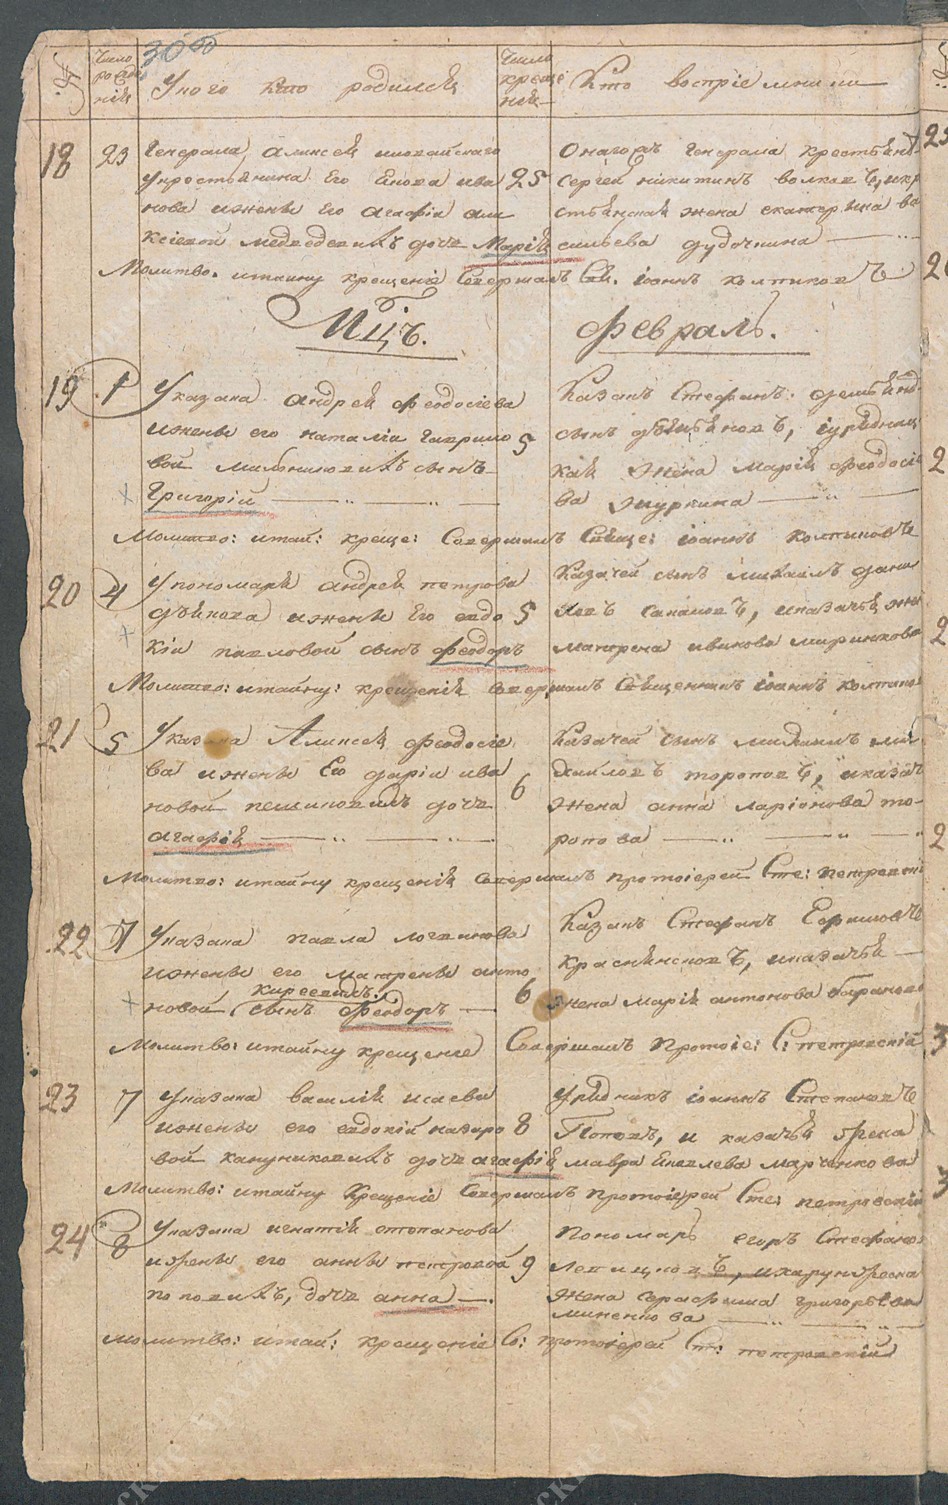 № Число рожденій У кого кто родился Число крещеній Кто воспріемники
30 об
18 23 Генерала Алиѯея иловайскаго
у крестьянина Его Якова ива 25
нова ижены Его Агафіи али
ксіевой медведевыхъ дочь Марія
Генерала крестьянъ
сергей никитинъ волковъ, и кре
стьянская жена екатерина ва
сильева дудочкина
Молитво. итаину крещенія Совершалъ Св. іоаннъ колпиковъ
Мцъ. Февраль.
19 1 Указака андрея феодосіева
ижены его наталіи гаврило 5
вой мильниковыхъ сынъ
Григорій
Казакъ Стефанъ демьяно
сынъ демьяновъ, і урядниц
кая жена Марія феодосіе
ва журкина
Молитво: итай: креще: Совершалъ Свяще: іоаннъ колпиковъ
20 4 У пономаря андрея петрова
ижены Его евдо 5
кіи павловой сынъ феодоръ
Казачей сынъ михаилъ дани
ловъ, иказачья же
матрена иванова миринкова
Молитво: итайну: крещенія совершалъ Священникъ іоаннъ колпико
21 5 Указака Аликсея феодосіе
ва ижены Его даріи ива 6
новой дочь
агафія
Казачей сынъ михаилъ ми
хайловъ тороповъ, иказач
жена анна ларіонова то
ропова
Молитво: итайну крещенія совершалъ протоіерей Сте: петровскі
22 7 Указака павла логвинова
ижены его матрены анто 6
новой киреевыхъ. сынъ феодоръ
Казакъ Стефанъ Ефимовъ
краснянсковъ, иказачья
жена Марія антонова баранова
Молитво: итайну крещеніе Совершалъ Протоіе: С: петровскій
23 7 Указака василія исаева
ижены его евдокіи назаро 8
вой дочь агафія
Урядникъ іоаннъ Степановъ
Поповъ, и казачья жена
мавра Яковлева марченкова
Молитво: итайну Крещеніе Совершалъ протоіерей Сте: петровскій
24 8 Указака игнатія стопанова
ижены его анны петровой 9
поповыхъ, дочь анна
Пономарь егоръ Стефано
жена серафима григорьева
миненкова
молитво: итай: крещеніе Со: протоіерей Ст: петровскій